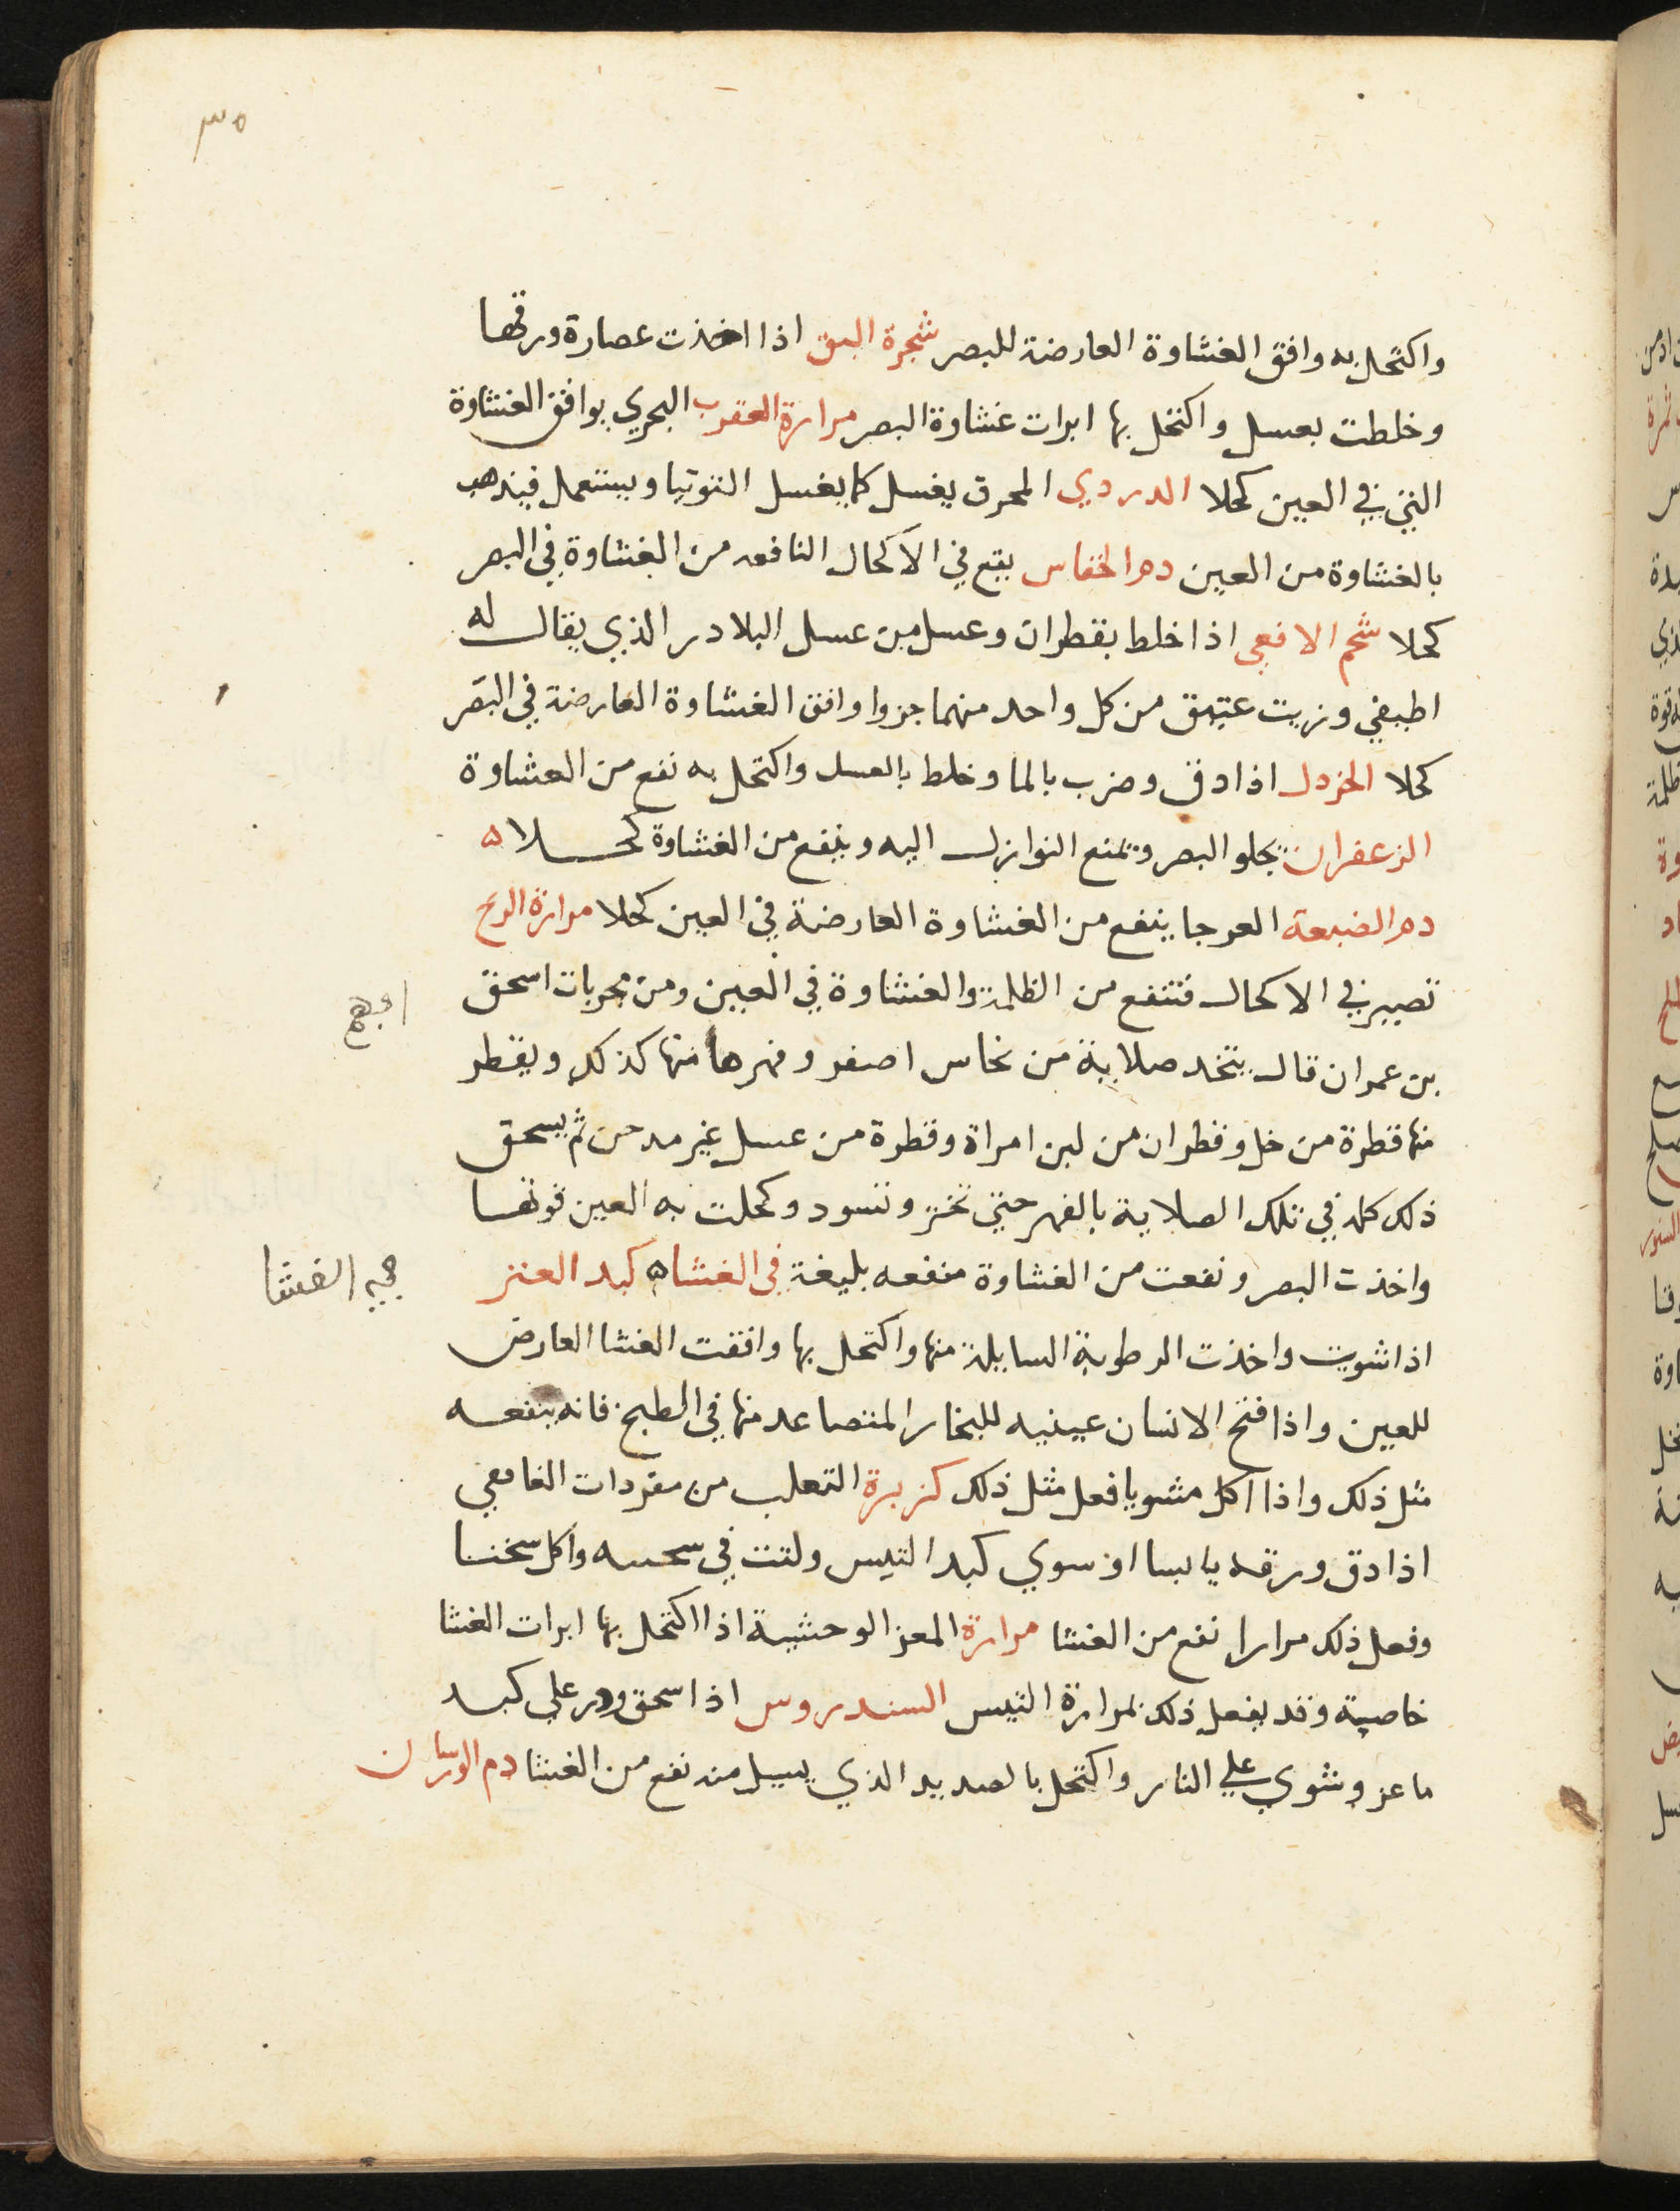 ٣٥
واكتحل به وافق الغشاوة العارضة للبصر شجرة البق اذا اخذت عصارة ورقها
وخلطت بعسل واكتحل بها ابرات غشاوة البصر مرارة العقرب البحري يوافق الغشاوة
التي في العين كحلا الدردي المحرق يغسل كما يغسل التوتيا ويستعمل فيذهب
بالغشاوة من العين دم الخفاس يقع في الاكحال النافعه من الغشاوة في البصر
كحلا شحم الافعي اذا خلط بقطران وعسل من عسل البلادر الذي يقال له
اطبيغي وزيت عتيق من كل واحد منهما جزوا وافق الغشاوة العارضة في البصر
كحلا الخردل اذا دق وضرب بالما وخلط بالعسل واكتحل به نفع من الغشاوة
الزعفران يجلو البصر ويمنع النوازل اليه وينفع من الغشاوة كحلا ه
دم الضبعة العرجا ينفع من الغشاوة العارضة في العين كحلا مرارة الرخ
تصير في الاكحال فتنفع من الظلمة والغشاوة في العين ومن مجربات اسحق
بن عمران قال يتخد صلاية من نحاس اصفر وفهرها منها كذلك ويقطر
منها قطرة من خل وقطران من لبن امراة وقطرة من عسل غير مدخن ثم يسحق
ذلك كله في تلك الصلاية بالفهر حتي تخثر وتسود وكحلت به العين قوتها
واخذت البصر ونفعت من الغشاوة منفعه بليغة في الغشا ه كبد العنز
اذا شويت واخذت الرطوبة السايلة منها واكتحل بها وافقت الغشا العارض
للعين واذا فتح الانسان عينيه للبخار المتصاعد منها في الطبخ فانه ينفعه
مثل ذلك واذا اكل مشويا فعل مثل ذلك كزبرة الثعلب من مفردات الغافقي
اذا دق ورقه يابسا او سوي كبد التيس ولتت في سحسه واكل سخنا
وفعل ذلك مرارا نفع من الغشا مرارة المعز الوحشية اذا اكتحل بها ابرات الغشا
خاصية وقد يفعل ذلك بمرارة التيس السندروس اذا سحق وذر علي كبد
ماعز وشوي علي النار واكتحل بالصديد الذي يسيل منه نفع من الغشا دم الورسان
الغشا